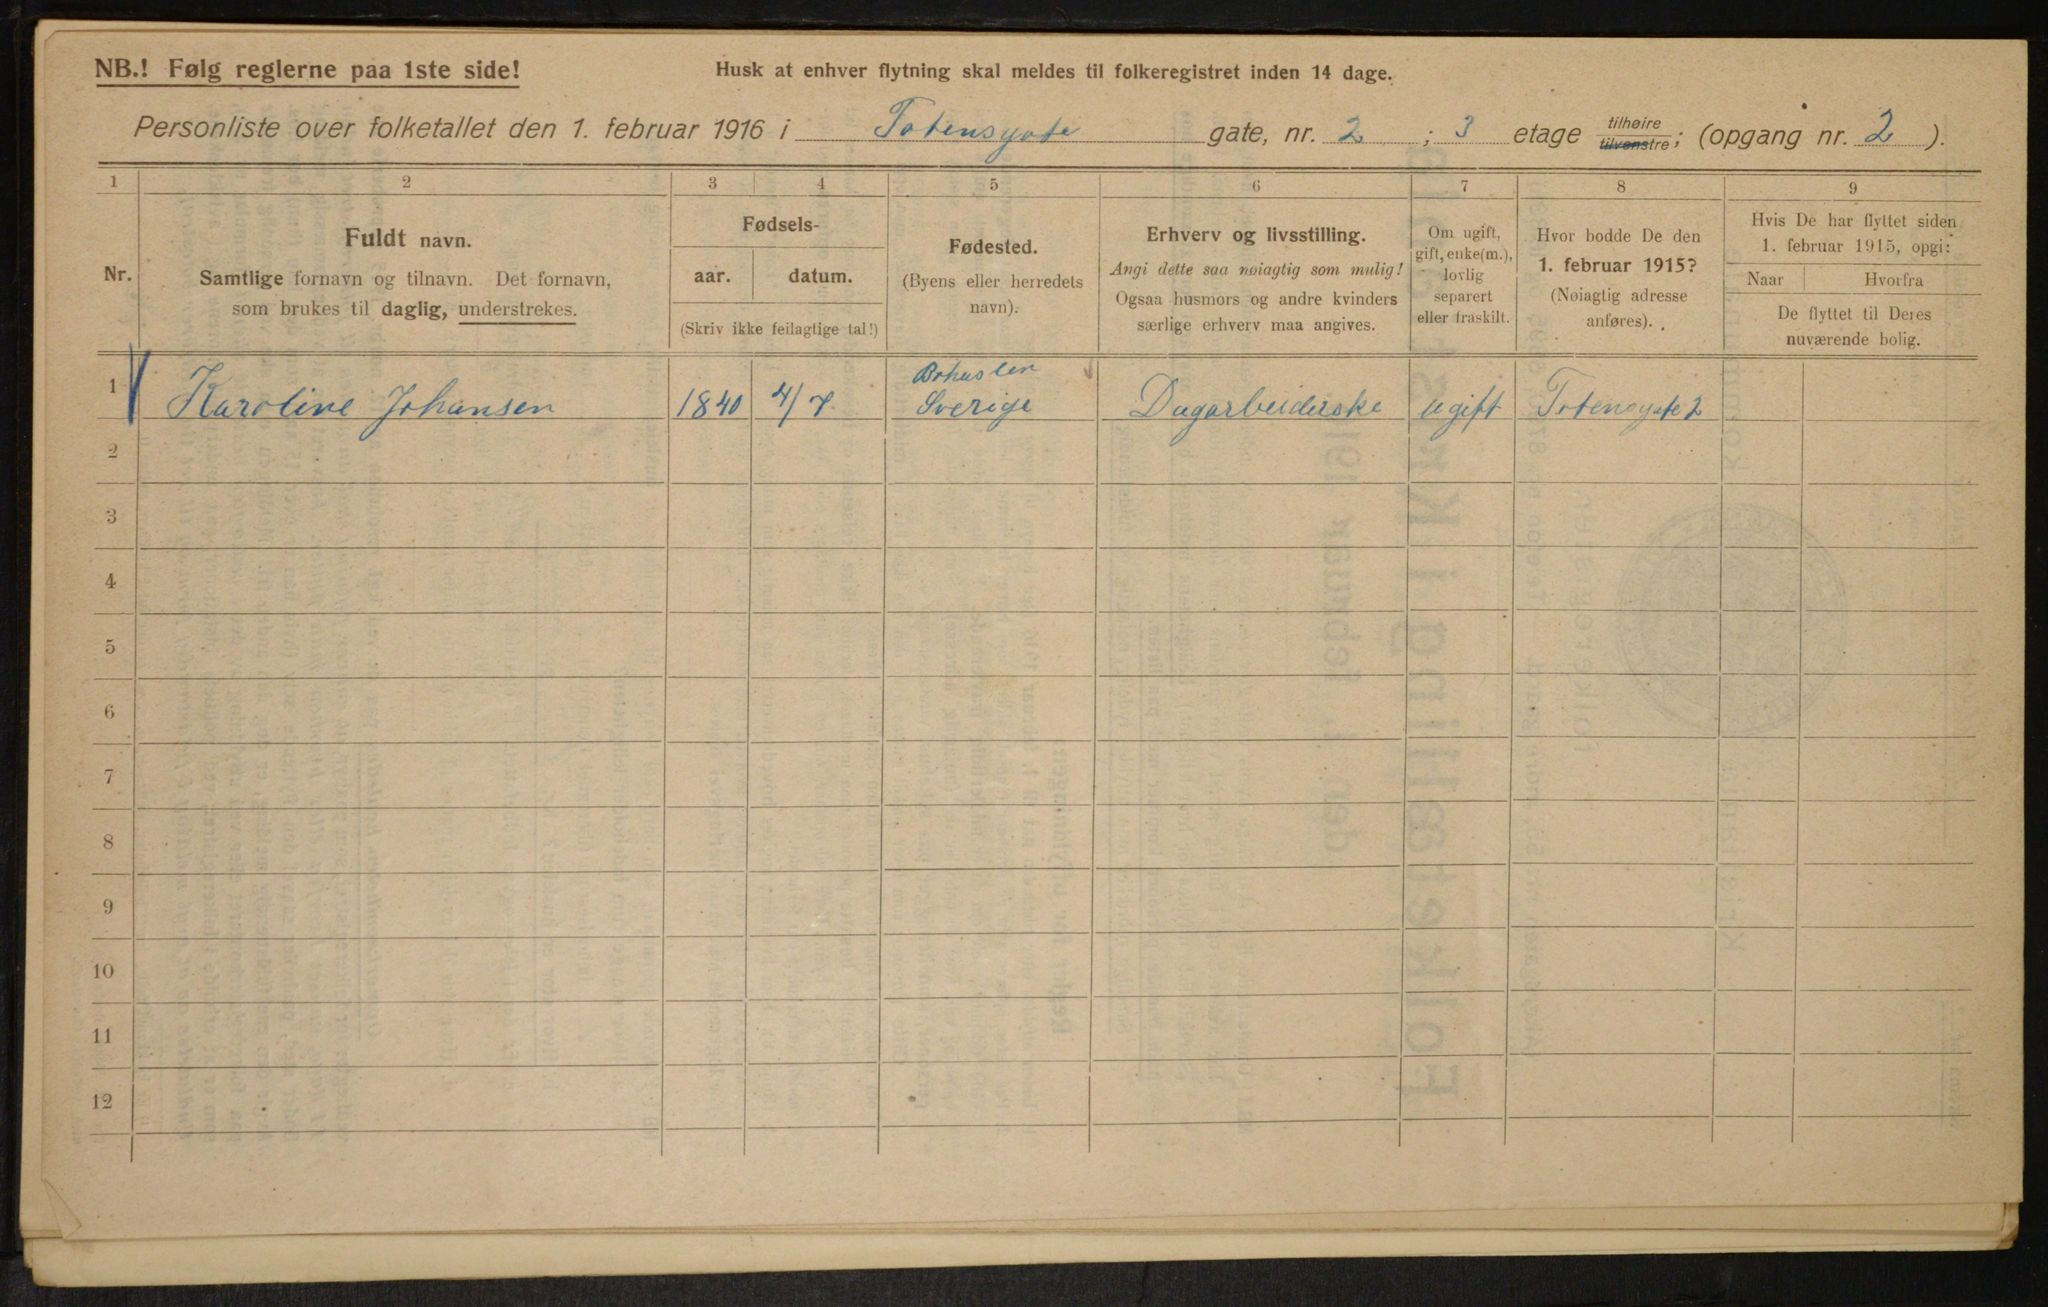 NB.! Følg reglerne paa 1ste side!
Husk at enhver flytning skal meldes til folkeregistret inden 14 dage.
Personliste over folketallet den 1. februar 1916 i Totensgate gate, nr. 2 ; 3 etage tilhøire tilvenstre; (opgang nr. 2 ).
1 2 3 4 5 6 7 8 9
Nr.
Fuldt navn.
Samtlige fornavn og tilnavn. Det fornavn,
som brukes til daglig, understrekes.
Fødsels-
aar. datum.
(Skriv ikke feilagtige tal!)
Fødested.
(Byens eller herredets
navn).
Erhverv og livsstilling.
Angi dette saa nøiagtig som mulig!
Ogsaa husmors og andre kvinders
særlige erhverv maa angives.
Om ugift,
gift, enke(m.),
lovlig
separert
eller fraskilt.
Hvor bodde De den
1. februar 1915?
(Nøiagtig adresse
anføres).
Hvis De har flyttet siden
1. februar 1915, opgi:
Naar Hvorfra
De flyttet til Deres
nuværende bolig.
1 Karoline Johansen 1840 4/7 Bohuslen Sverige Dagarbeiderske ugift Totensgate 2
2
3
4
5
6
7
8
9
10
11
12